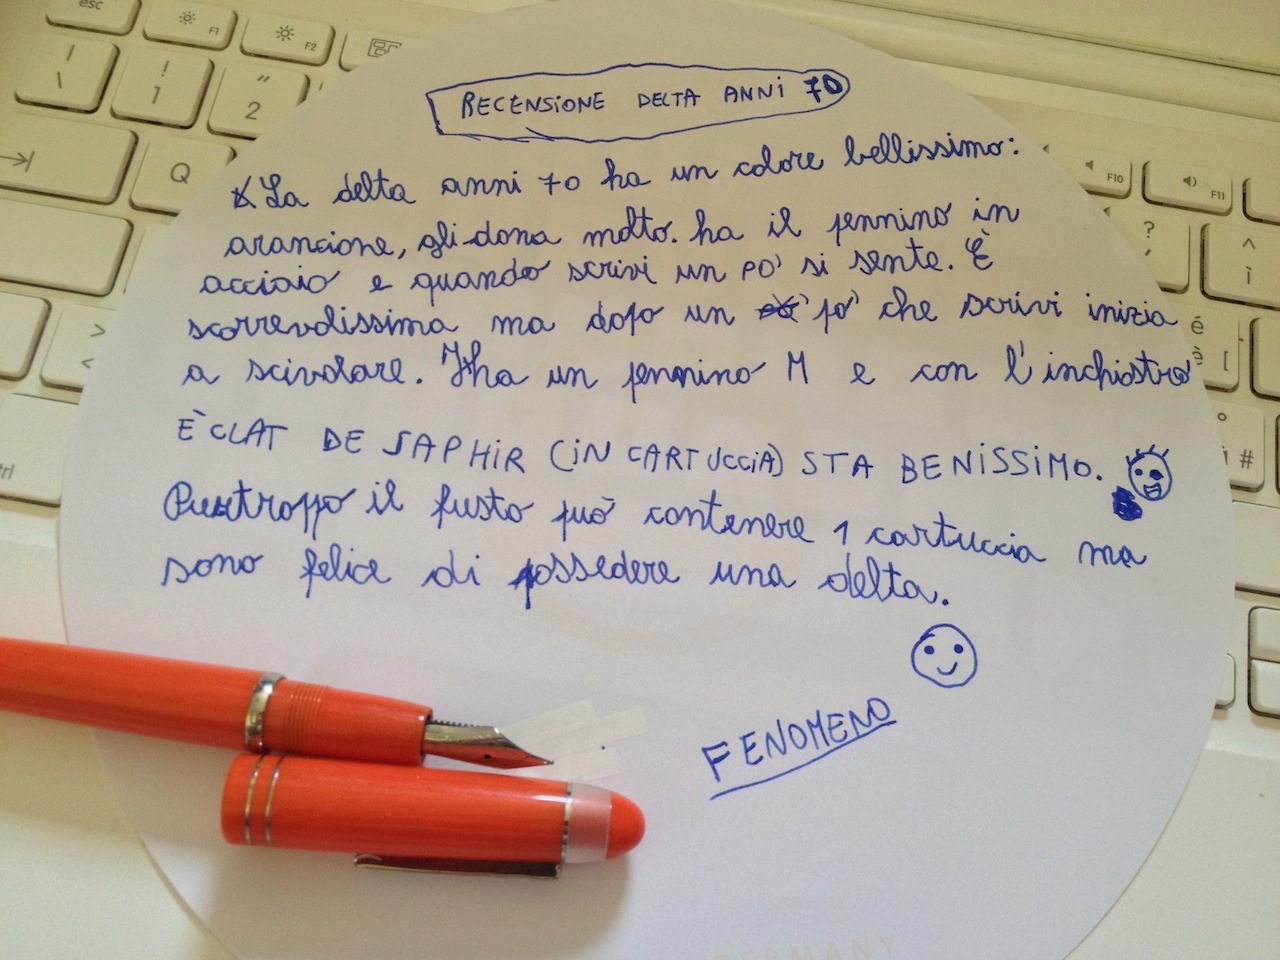 RECENSIONE DELTA ANNI 70
La delta anni 70 ha un colore bellissimo:
arancione, gli dona molto. ha il pennino in
acciaio e quando scrivi un po' si sente. È
scorrevolissima ma dopo un po' che scrivi inizia
a scivolare. ha un pennino M e con l'inchiostro
ÈCLAT DE SAPHIR (IN CARTUCCIA) STA BENISSIMO.
Purtroppo il fusto può contenere 1 cartuccia ma
sono felice di possedere una delta.
FENOMENO
GERMANY
esc
F1
F2
F10
F11
|
\
!
1
"
2
Q
>
<
?
'
^
ì
é
è
[
°
#